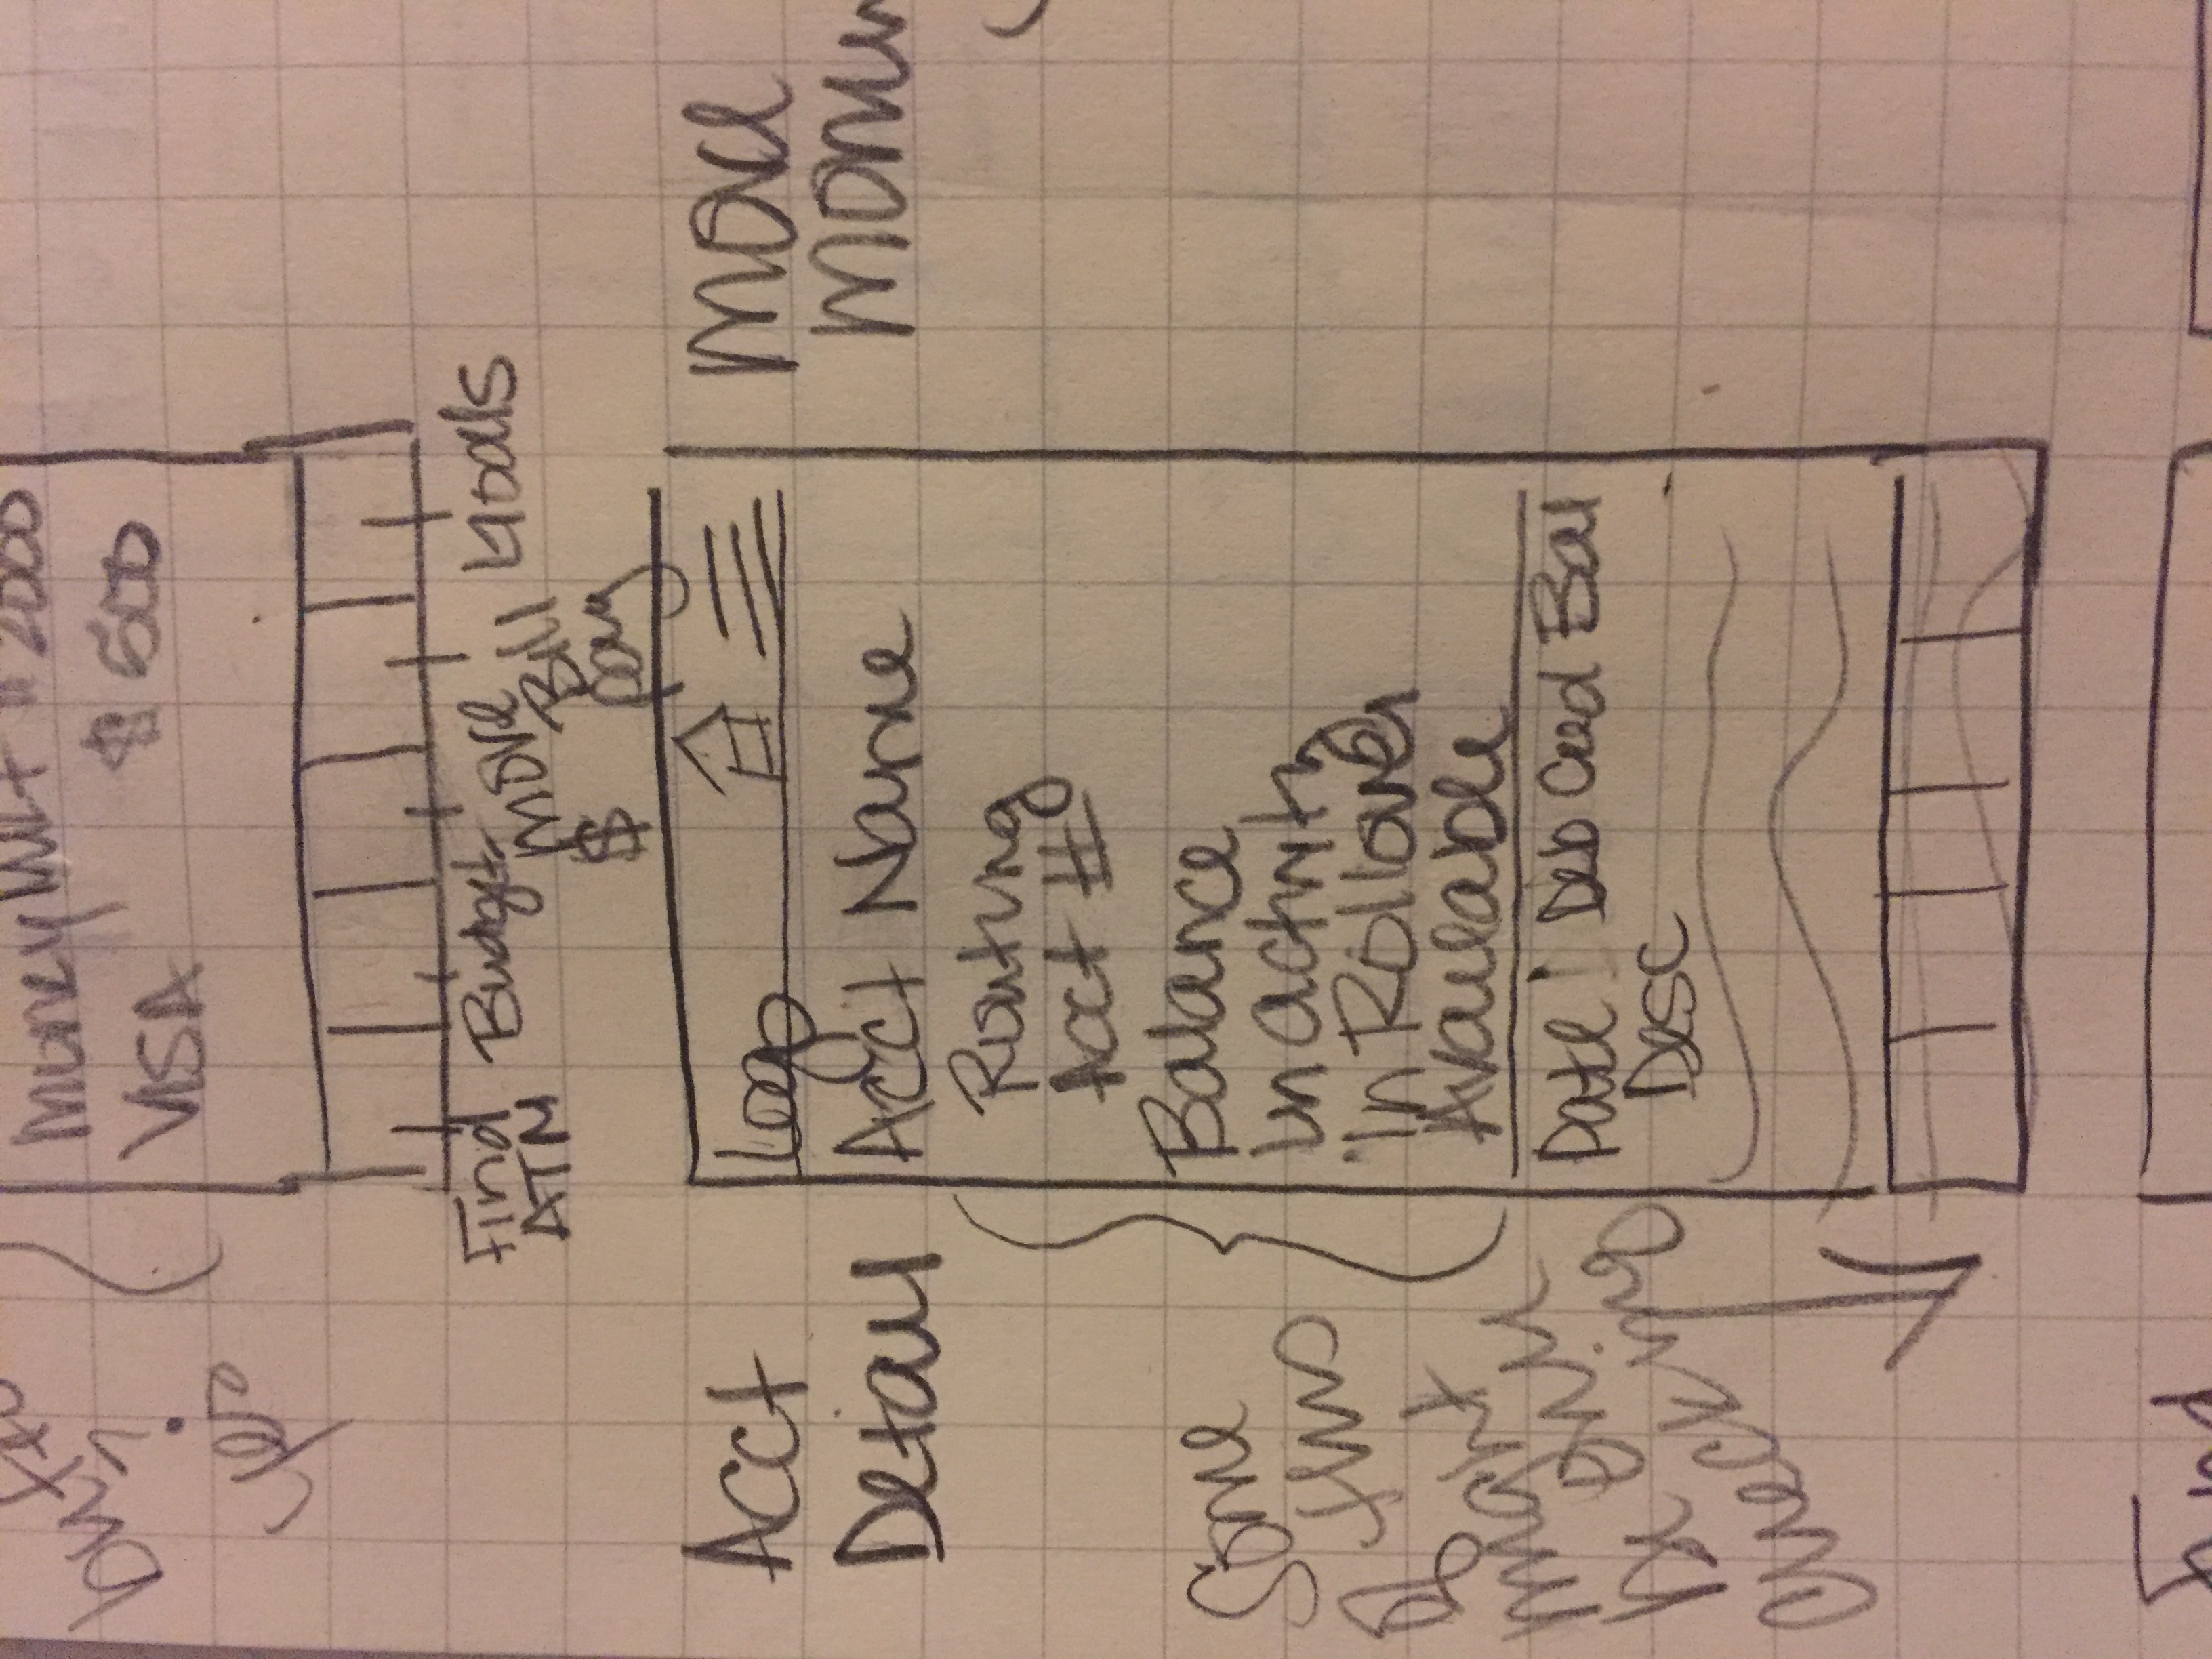 button
?
yes
Money Mkt $ 2000
VISA $ 500
Find
ATM
Budget
Move
$
Bill
pay
Goals
Acct
Detail
Logo
Acct Name
Routing
Acct #
Balance
In activity
In Rollover
Available
Date Deb Cred Bal
Desc
Some
of this
might
be on
checking
Move
Find